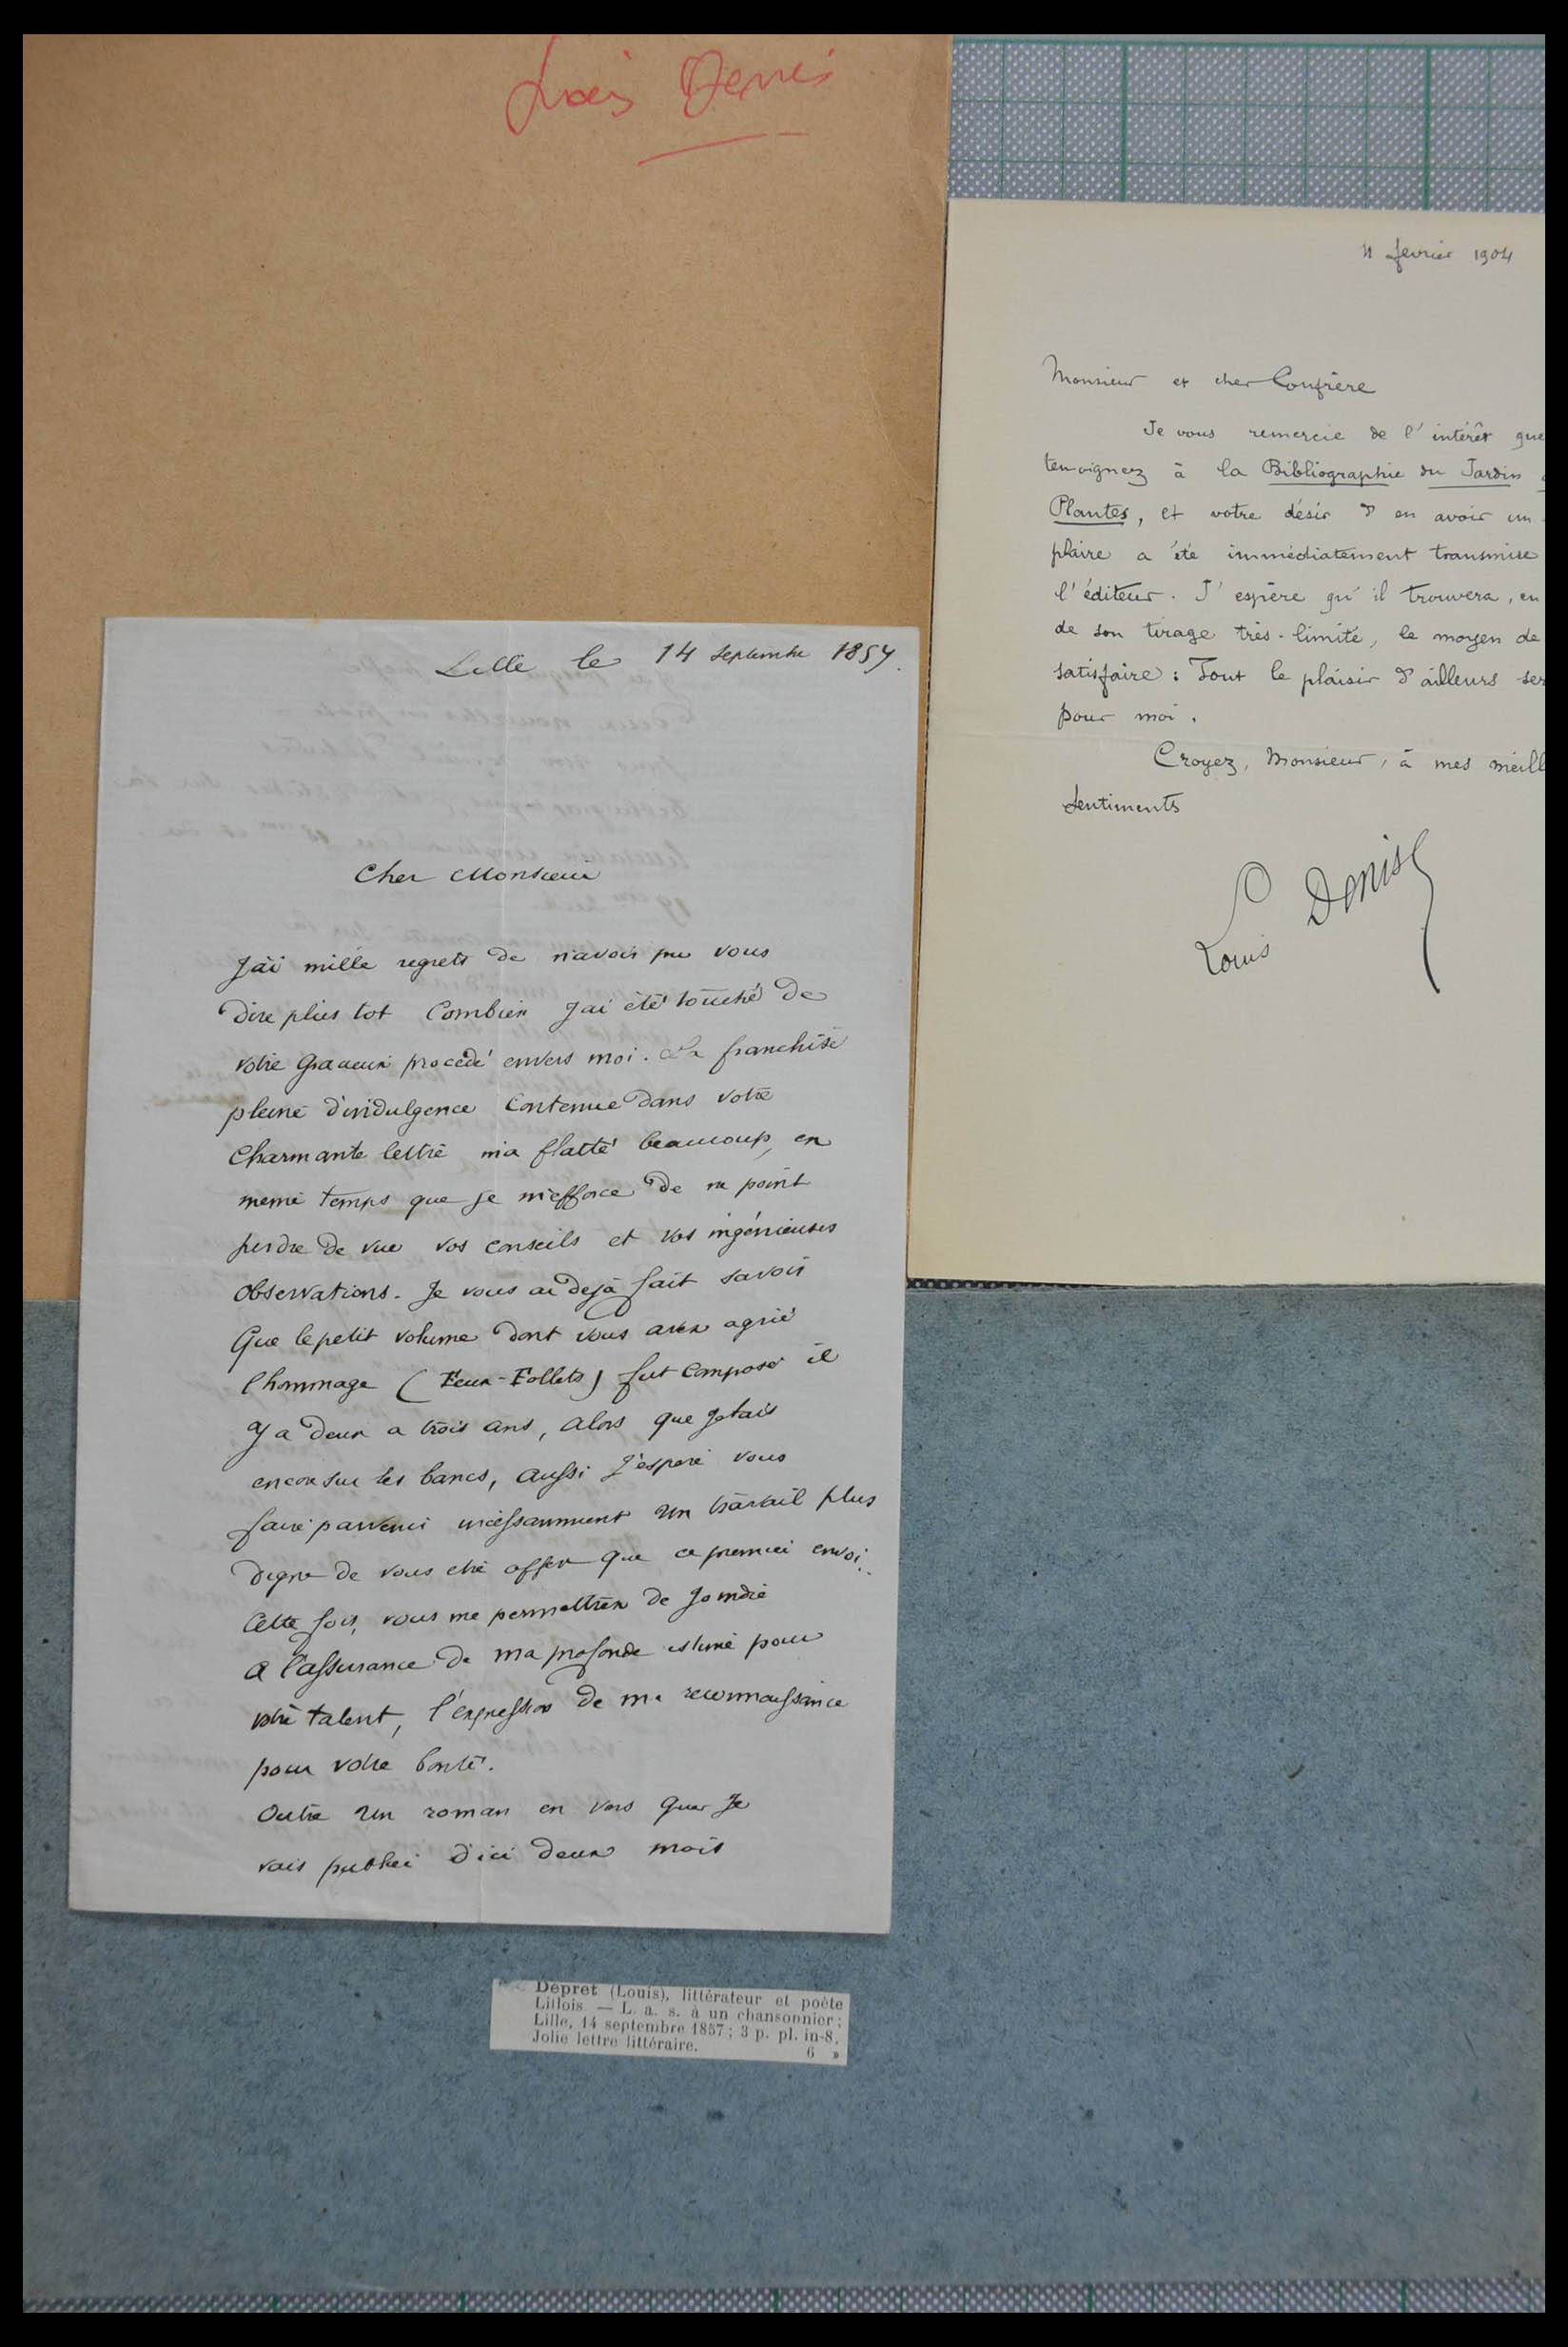 Louis Denis
Lille le 14 septembre 1857.
Cher Monsieur
J'ai mille regrets de n'avoir pu vous
dire plus tot combien j'ai été touché de
votre gracieux procédé envers moi. La franchise
pleine d'indulgence contenue dans votre
charmante lettre m'a flatté beaucoup, en
meme temps que je m'efforce de ne point
perdre de vue vos conseils et vos ingénieuses
observations. Je vous ai dejà fait savoir
que le petit volume dont vous avez agréé
l'hommage (Feux-Follets) fut composé il
y a deux a trois ans, alors que j'etais
encore sur les bancs, aussi j'espere vous
faire parvenir incessamment un travail plus
digne de vous etre offert que ce premier envoi.
Cette fois, vous me permettrez de joindre
a l'assurance de ma profonde estime pour
votre talent, l'expression de ma reconnaissance
pour votre bonté.
Outre un roman en vers que je
vais publier d'ici deux mois
Depret (Louis), littérateur et poète
Lillois. — L. a. s. à un chansonnier;
Lille, 14 septembre 1857; 3 p. pl. in-8.
Jolie lettre littéraire. 6 »
11 fevrier 1904
Monsieur et cher Confrère
Je vous remercie de l'intérêt que
temoignez à la Bibliographie du Jardin
Plantes, et votre désir d'en avoir un
plaire a été immédiatement transmise
l'éditeur. J'espère qu'il trouvera, en
de son tirage très-limité, le moyen de
satisfaire : Tout le plaisir d'ailleurs ser
pour moi.
Croyez, Monsieur, à mes meill
sentiments
Louis Denise